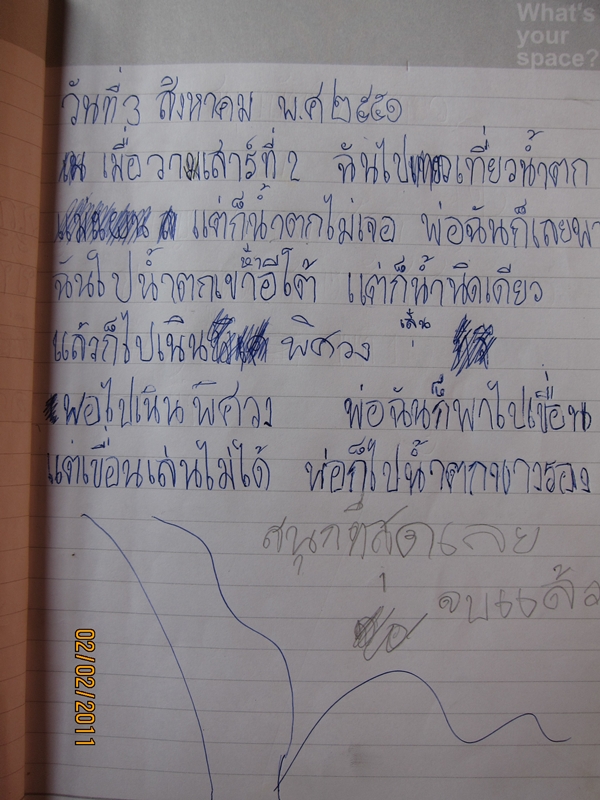 What's
your
space?
วันที่ 3 สิงหาคม พ.ศ ๒๕๕๑
เมื่อวานเสาร์ที่ 2 ฉันไปเที่ยวน้ำตก
แต่ก็น้ำตกไม่เจอ พ่อฉันก็เลยพา
ฉันไปน้ำตกเขาอีโต้ แต่ก็น้ำนิดเดียว
แล้วก็ไปเนิน พิศวง
พอไปเนินพิศวง พ่อฉันก็พาไปเขื่อน
แต่เขื่อนเล่นไม่ได้ พ่อก็ไปน้ำตกนางรอง
สนุกที่สุดเลย
จบแล้ว
02/02/2011